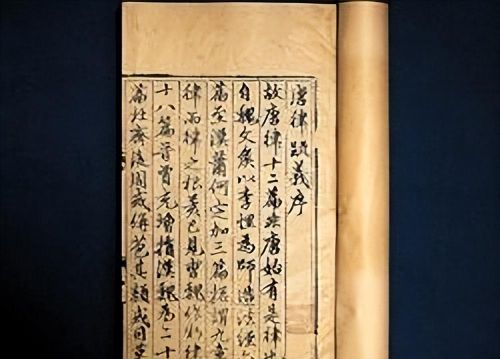 唐律疏義序
故唐律十二篇非唐始有是律也
自魏文侯以李悝為師造法經六
篇至漢蕭何定加三篇總謂九章
律而律之根荄已見曹魏作新律
十八篇晉賈充增損漢魏為二十
篇北齊後周或併苞其類或因革